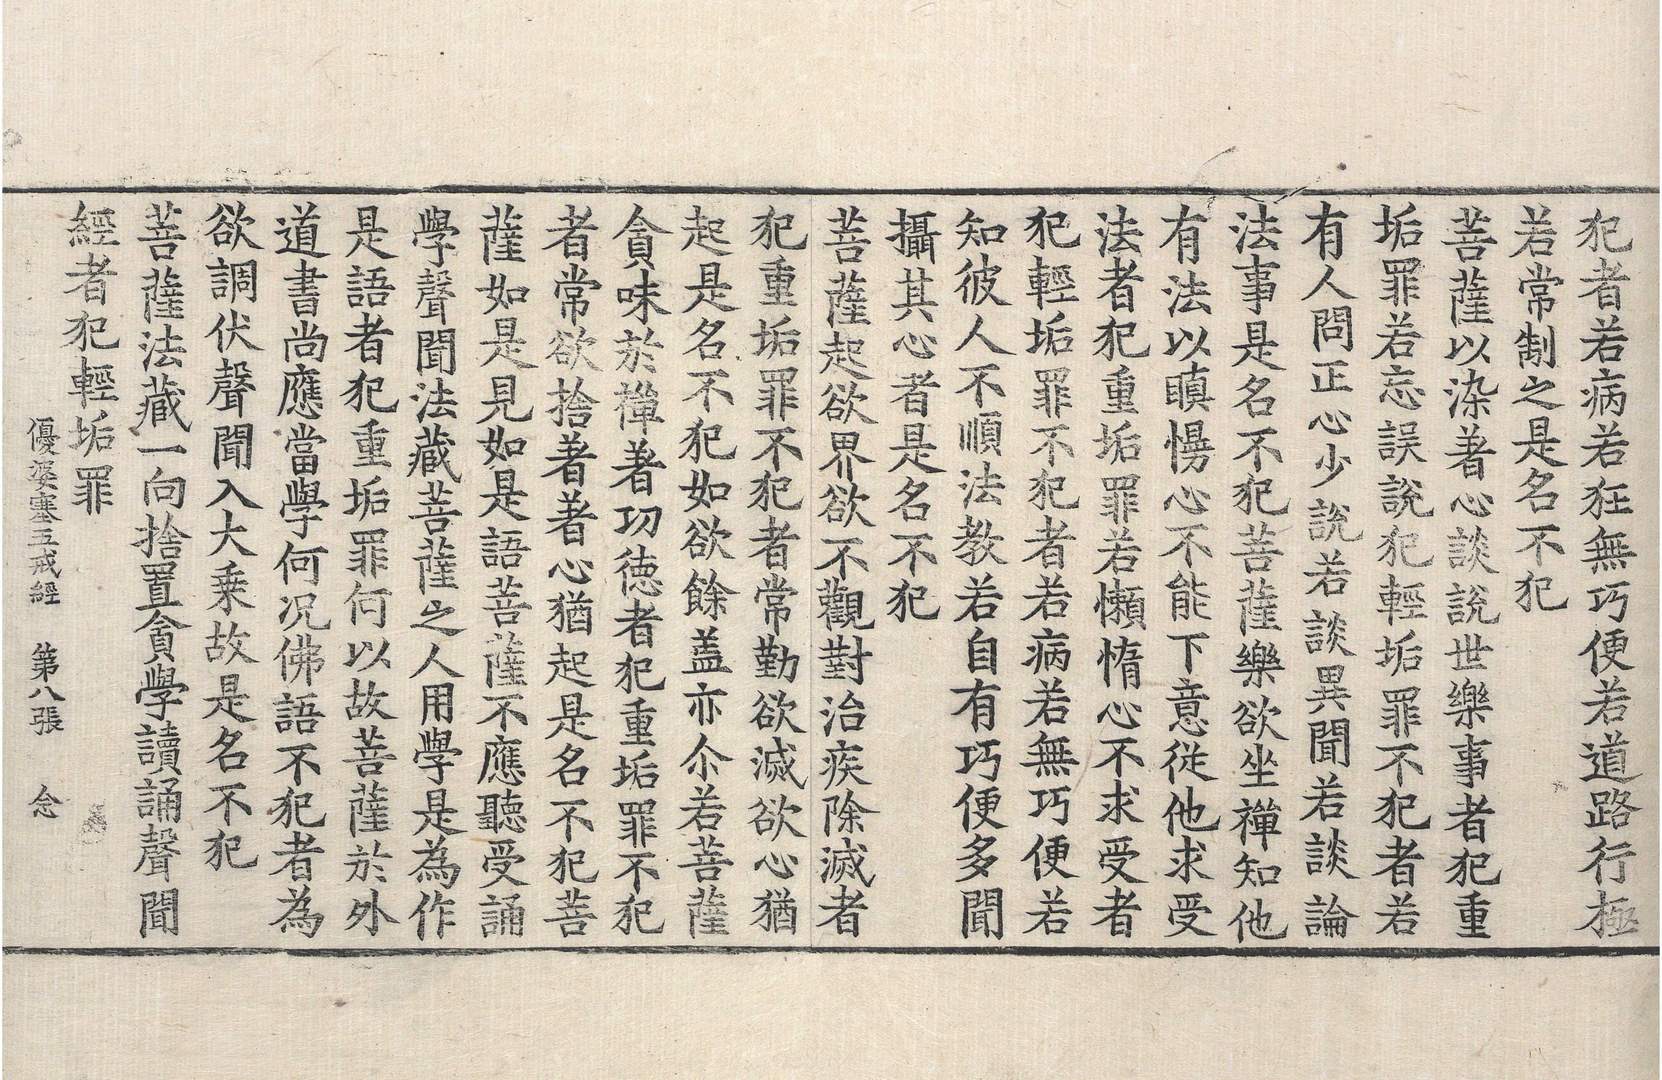 犯者若病若狂無巧便若道路行極
若常制之是名不犯
菩薩以染著心談說世樂事者犯重
垢罪若忘誤說犯輕垢罪不犯者若
有人問正心少說若談異聞若談論
法事是名不犯菩薩樂欲坐禪知他
有法以瞋慢心不能下意從他求受
法者犯重垢罪若懶惰心不求受者
犯輕垢罪不犯者若病若無巧便若
知彼人不順法教若自有巧便多聞
攝其心者是名不犯
菩薩起欲界欲不觀對治疾除滅者
犯重垢罪不犯者常勤欲滅欲心猶
起是名不犯如欲餘盖亦尒若菩薩
貪味於禪著功德者犯重垢罪不犯
者常欲捨著著心猶起是名不犯菩
薩如是見如是語菩薩不應聽受誦
學聲聞法藏菩薩之人用學是為作
是語者犯重垢罪何以故菩薩於外
道書尚應當學何况佛語不犯者為
欲調伏聲聞入大乘故是名不犯
菩薩法藏一向捨置貪學讀誦聲聞
經者犯輕垢罪
優婆塞五戒經 第八張 念